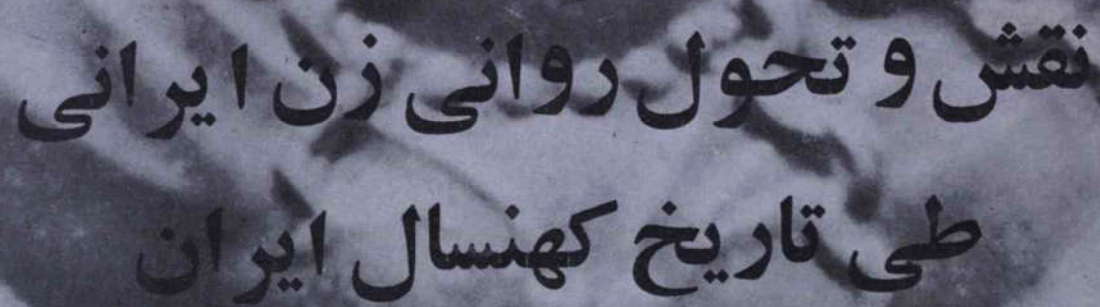 نقش و تحول روانی زن ایرانی
طی تاریخ کهنسال ایران